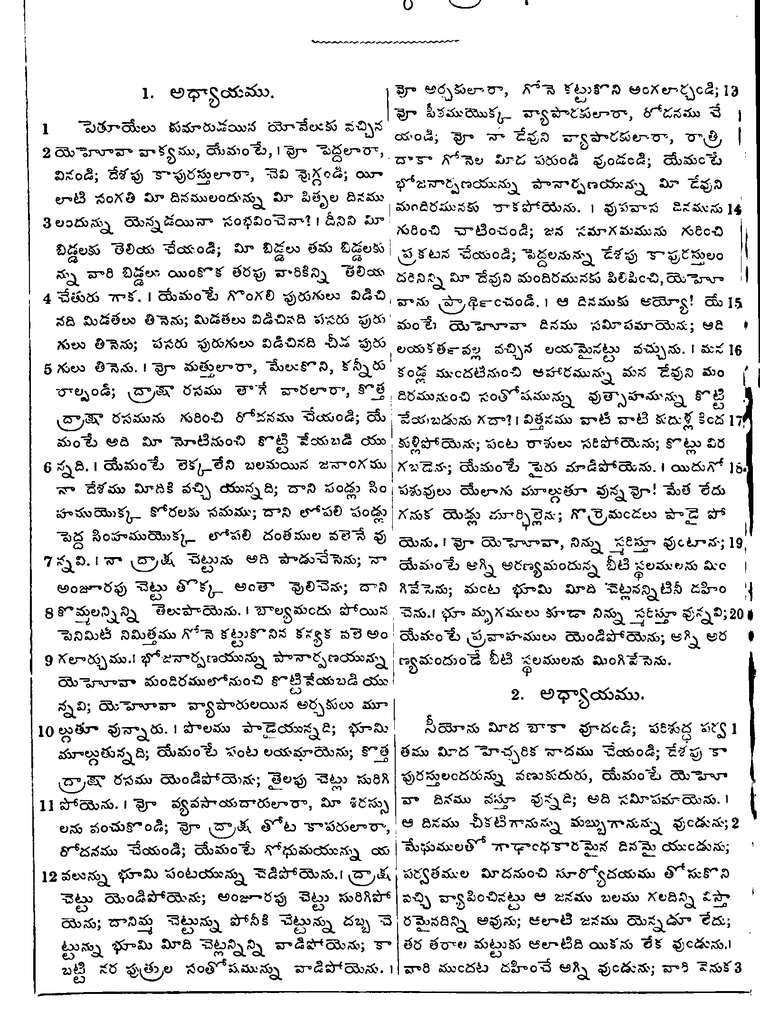 1. అధ్యాయము.
1 పెతూయేలు కుమారుడయిన యోవేలుకు వచ్చిన
2 యెహోవా వాక్యము, యేమంటే, । వో పెద్దలారా,
వినండి; దేశపు కాపురస్తులారా, చెవి యొగ్గండి; యీ
లాటి సంగతి మీ దినములందున్ను మీ పితృల దినము
3 లందున్ను యెన్నడయినా సంభవించెనా? । దీనిని మీ
బిడ్డలకు తెలియ చేయండి; మీ బిడ్డలు తమ బిడ్డలకు
న్ను వారి బిడ్డలు యింకొక తరపు వారికిన్ని తెలియ
4 చేతురు గాక. । యేమంటే గొంగలి పురుగులు విడిచి
నది మిడతలు తినెను; మిడతలు విడిచినది పసరు పురు
గులు తినెను; పసరు పురుగులు విడిచినది చీడ పురు
5 గులు తినెను. । వో మత్తులారా, మేలుకొని, కన్నీరు
రాల్చండి; ద్రాక్షా రసము తాగే వారలారా, కొత్త
ద్రాక్షా రసమును గురించి రోదనము చేయండి; యే
మంటే అది మీ నోటినుంచి కొట్టి వేయబడి యు
6 న్నది. । యేమంటే లెక్కలేని బలమయిన జనాంగము
నా దేశము మీదికి వచ్చి యున్నది; దాని పండ్లు సిం
హముయొక్క కోరలకు సమము; దాని లోపలి పండ్లు
పెద్ద సింహముయొక్క లోపలి దంతముల వలెనే వు
7 న్నవి. । నా ద్రాక్ష చెట్టును అది పాడుచేసెను; నా
అంజూరపు చెట్టు తొక్క అంతా వొలిచెను; దాని
8 కొమ్మలన్నిన్ని తెలుపాయెను. । బాల్యమందు పోయిన
పెనిమిటి నిమిత్తము గోనె కట్టుకొనిన కన్యక వలె అం
9 గలార్చుము. । భోజనార్పణయున్ను పానార్పణయున్ను
యెహోవా మందిరములోనుంచి కొట్టివేయబడి యు
న్నవి; యెహోవా వ్యాపారులయిన అర్చకులు మూ
10 ల్గుతూ వున్నారు. । పొలము పాడైయున్నది; భూమి
మూల్గుతున్నది; యేమంటే పంట లయమాయెను; కొత్త
ద్రాక్షా రసము యెండిపోయెను; తైలపు చెట్లు సురిగి
11 పోయెను. । వో వ్యవసాయదారులారా, మీ శిరస్సు
లను వంచుకొండి; వో ద్రాక్ష తోట కాపరులారా,
రోదనము చేయండి; యేమంటే గోధుమయున్ను య
12 వలున్ను భూమి పంటయున్ను చెడిపోయెను. । ద్రాక్ష
చెట్టు యెండిపోయెను; అంజూరపు చెట్టు సురిగిపో
యెను; దానిమ్మ చెట్టున్ను పోనీకి చెట్టున్ను దబ్బ చె
ట్టున్ను భూమి మీది చెట్లన్నిన్ని వాడిపోయెను; కా
బట్టి నర పుత్రుల సంతోషమున్ను వాడిపోయెను. ।
వో అర్చకులారా, గోనె కట్టుకొని అంగలార్చండి; 13
వో పీఠముయొక్క వ్యాపారకులారా, రోదనము చే
యండి; వో నా దేవుని వ్యాపారకులారా, రాత్రి
దాకా గోనెల మీద పరుండి వుండండి; యేమంటే
భోజనార్పణయున్ను పానార్పణయున్ను మీ దేవుని
మందిరమునకు రాకపోయెను. । వుపవాస దినమును 14
గురించి చాటించండి; జన సమాగమమును గురించి
ప్రకటన చేయండి; పెద్దలనున్ను దేశపు కాపురస్తులం
దరినిన్ని మీ దేవుని మందిరమునకు పిలిపించి, యెహో
వాను ప్రార్థించండి. । ఆ దినముకు అయ్యో! యే 15
మంటే యెహోవా దినము సమీపమాయెను; ఆది
లయకర్తవల్ల వచ్చిన లయమైనట్టు వచ్చును. । మన 16
కండ్ల ముందటినుంచి ఆహారమున్ను మన దేవుని మం
దిరమునుంచి సంతోషమున్ను వుత్సాహమున్ను కొట్టి
వేయబడును గదా? । విత్తనము వాటి వాటి కుదుళ్ల కింద 17
కుళ్లిపోయెను; పంట రాశులు సరిపోయెను; కొట్లు విర
గబడెను; యేమంటే పైరు మాడిపోయెను. । యిదుగో 18
పశువులు యేలాగు మూల్గుతూ వున్నవో! మేత లేదు
గనుక యెడ్లు మూర్ఛిల్లెను; గొర్రెమందలు పాడై పో
యెను. । వో యెహోవా, నిన్ను స్మరిస్తూ వుంటాను; 19
యేమంటే అగ్ని అరణ్యమందున్న బీటి స్థలములను మిం
గివేసెను; మంట భూమి మీది చెట్లనన్నిటినీ దహిం
చెను. । భూ మృగములు కూడా నిన్ను స్మరిస్తూ వున్నవి; 20
యేమంటే ప్రవాహములు యెండిపోయెను; అగ్ని అర
ణ్యమందుండే బీటి స్థలములను మింగివేసెను.
2. అధ్యాయము.
సీయోను మీద బాకా వూదండి; పరిశుద్ధ పర్వ 1
తము మీద హెచ్చరిక నాదము చేయండి; దేశపు కా
పురస్తులందరున్ను వణుకుదురు, యేమంటే యెహో
వా దినము వస్తూ వున్నది; అది సమీపమాయెను. ।
ఆ దినము చీకటిగానున్ను మబ్బుగానున్ను వుండును; 2
మేఘములతో గాఢాంధకారమైన దినమై యుండును;
పర్వతముల మీదనుంచి సూర్యోదయము తోసుకొని
వచ్చి వ్యాపించినట్టు ఆ జనము బలము గలదిన్ని విస్తా
రమైనదిన్ని అవును; ఆలాటి జనము యెన్నడూ లేదు;
తర తరాల మట్టుకు ఆలాటిది యికను లేక వుండును. ।
వారి ముందట దహించే అగ్ని వుండును; వారి వెనుక 3